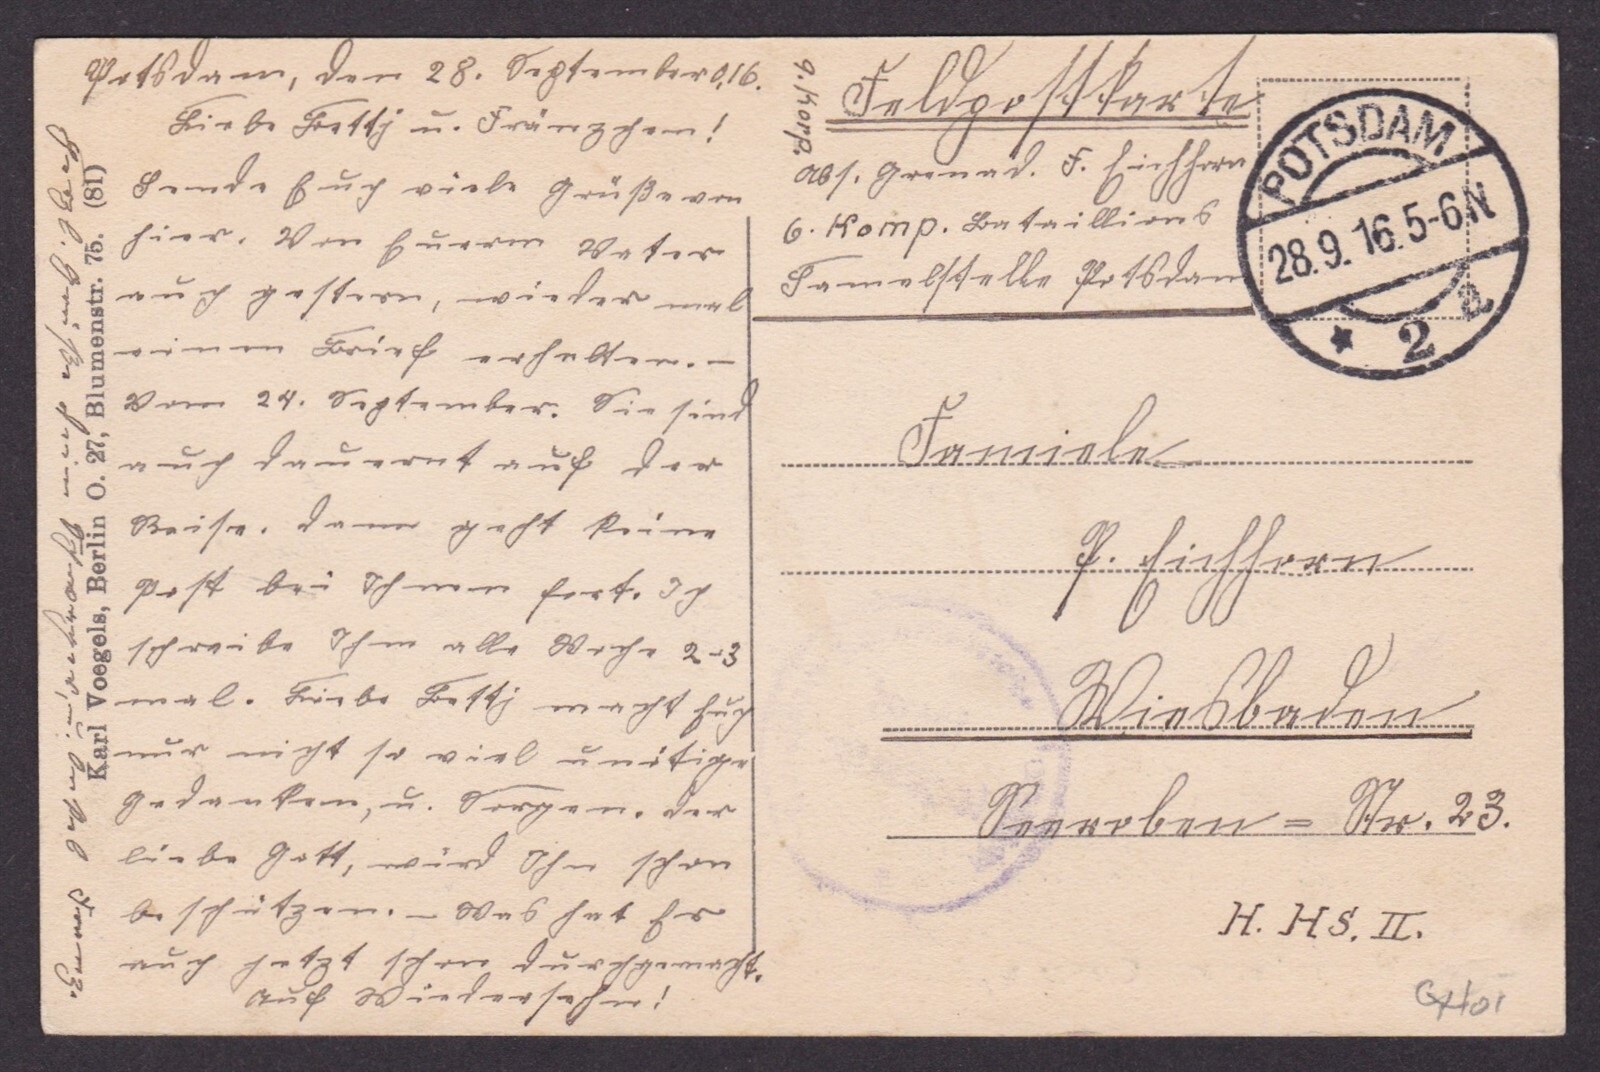 Potsdam, den 28. September 0.16.
Liebe Betty u. Fränzchen!
Sende Euch viele Grüße von
hier. Von Euerm Vater
auch gestern, wieder mal
einen Brief erhalten. –
Vom 24. September. Sie sind
auch dauernt auf der
Reise. dann geht keine
Post bei Ihnen fort. Ich
schreibe Ihm alle Woche 2-3
mal. Liebe Betty macht Euch
nur nicht so viel unötige
Gedanken, u. Sorgen. der
liebe Gott, wird Ihn schon
beschützen. – Was hat Er
auch jetzt schon durchgemacht.
Auf Wiedersehn!
Herzl. Grüße dein Schwager, u. Onkel Franz.
Karl Voegels, Berlin O. 27, Blumenstr. 75. (81)
9. Korp.
Feldpostkarte
Abs. Grenad. F. Eichhorn
6. Komp. Bataillions
Samelstelle Potsdam
POTSDAM
28.9.16.5-6N
* 2 a
Famiele
P. Eichhorn
Wiesbaden
Seeroben = Str. 23.
H. HS. II.